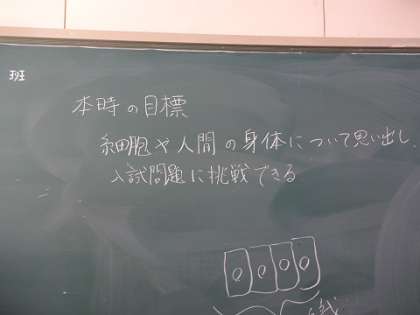 班
本時の目標
細胞や人間の身体について思い出し、
入試問題に挑戦できる